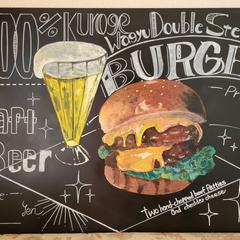 100% KUROGE
Wagyu Double Ste
BURGE
Craft
Beer
Yen
two hand-chopped beef Patties
and cheddar cheese